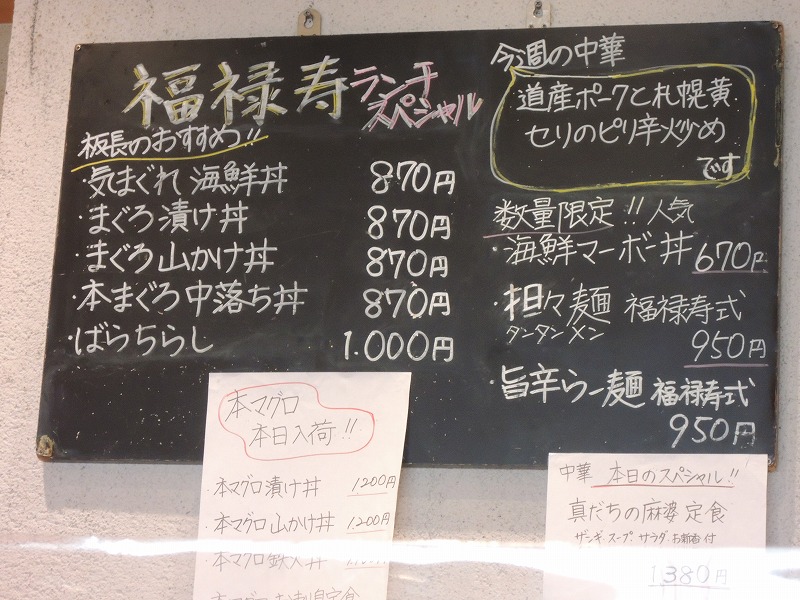 福禄寿 ランチ
スペシャル
板長のおすすめ!!
・気まぐれ海鮮丼 870円
・まぐろ漬け丼 870円
・まぐろ山かけ丼 870円
・本まぐろ中落ち丼 870円
・ばらちらし 1.000円
今週の中華
道産ポークと札幌黄
セリのピリ辛炒め
です
数量限定!!人気
・海鮮マーボー丼 670円
・担々麺 福禄寿式
タンタンメン
950円
・旨辛らー麺 福禄寿式
950円
本マグロ
本日入荷!!
・本マグロ漬け丼 1,200円
・本マグロ山かけ丼 1,200円
・本マグロ鉄火丼
中華 本日のスペシャル!!
真だちの麻婆定食
ザンギ・スープ サラダ・お新香付
1380円